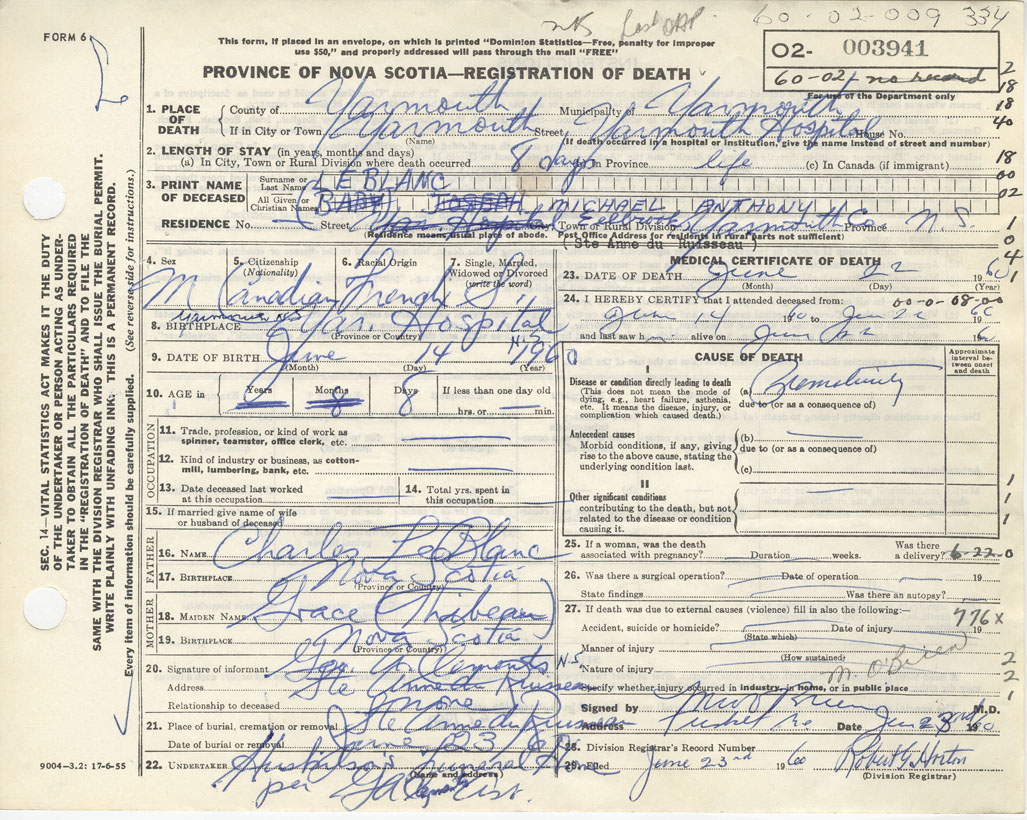 60-02-009 334
FORM 6
This form, if placed in an envelope, on which is printed "Dominion Statistics—Free, penalty for improper
use $50," and properly addressed will pass through the mail "FREE"
02- 003941
60-02/ no record
For use of the Department only
PROVINCE OF NOVA SCOTIA—REGISTRATION OF DEATH
1. PLACE OF DEATH
County of Yarmouth Municipality of Yarmouth
If in City or Town Yarmouth Street Yarmouth Hospital House No.
(Name) (If death occurred in a hospital or institution, give the name instead of street and number)
2. LENGTH OF STAY (in years, months and days)
(a) In City, Town or Rural Division where death occurred 8 days In Province life (c) In Canada (if immigrant)
3. PRINT NAME OF DECEASED
Surname or Last Name LEBLANC
All Given or Christian Names BABY JOSEPH MICHAEL ANTHONY
RESIDENCE No. Street Yar. Hospital City Town or Rural Division Eelbrook Yarmouth Co Province N.S.
(Residence means usual place of abode. Post Office Address for residents in rural parts not sufficient)
(Ste Anne du Ruisseau)
4. Sex
M
5. Citizenship
(Nationality)
Canadian
6. Racial Origin
French
7. Single, Married, Widowed or Divorced
(write the word)
S
8. BIRTHPLACE Yar. Hospital
Yarmouth NS
(Province or Country)
9. DATE OF BIRTH June 14 1960
N.S.
(Month) (Day) (Year)
10. AGE
Years Months Days 8 If less than one day old
hrs. or min.
OCCUPATION
11. Trade, profession, or kind of work as
spinner, teamster, office clerk, etc.
12. Kind of industry or business, as cotton-
mill, lumbering, bank, etc.
13. Date deceased last worked
at this occupation
14. Total yrs. spent in
this occupation
15. If married give name of wife
or husband of deceased
FATHER
16. NAME Charles LeBlanc
17. BIRTHPLACE Nova Scotia
(Province or Country)
MOTHER
18. MAIDEN NAME Grace (Thibeau)
19. BIRTHPLACE Nova Scotia
(Province or Country)
20. Signature of informant Geo. A. Clements
Address Ste Anne du Ruisseau N.S.
Relationship to deceased none
21. Place of burial, cremation or removal Ste Anne du Ruisseau
Date of burial or removal June 23/60
22. UNDERTAKER Huskilson's Funeral Home
(Name and address)
per GA Clements Asst.
MEDICAL CERTIFICATE OF DEATH
23. DATE OF DEATH June 22 1960
(Month) (Day) (Year)
24. I HEREBY CERTIFY that I attended deceased from: 00-0-08-00
June 14 1960 to Jun 22 1960
and last saw h m alive on Jun 22 1960
CAUSE OF DEATH
Approximate interval between onset and death
I
Disease or condition directly leading to death
(This does not mean the mode of dying, e.g., heart failure, asthenia, etc. It means the disease, injury, or complication which caused death.)
(a) Prematurity
due to (or as a consequence of)
Antecedent causes
Morbid conditions, if any, giving rise to the above cause, stating the underlying condition last.
(b)
due to (or as a consequence of)
(c)
II
Other significant conditions
contributing to the death, but not related to the disease or condition causing it.
25. If a woman, was the death
associated with pregnancy? Duration weeks. Was there a delivery? 6-22-0
26. Was there a surgical operation? Date of operation 19
State findings Was there an autopsy?
27. If death was due to external causes (violence) fill in also the following:—
776x
Accident, suicide or homicide? Date of injury 19
(State which)
Manner of injury
(How sustained)
M. O'Brien
Nature of injury
Specify whether injury occurred in industry, in home, or in public place
Signed by M W O'Brien M.D.
Address Tusket Date Jun 23rd 1960
28. Division Registrar's Record Number
29. Filed June 23rd 1960 Robert G. Horton
(Division Registrar)
2
18
18
40
18
00
02
1
0
4
1
1
1
1
2
2
1
SEC. 14—VITAL STATISTICS ACT MAKES IT THE DUTY
OF THE UNDERTAKER OR PERSON ACTING AS UNDER-
TAKER TO OBTAIN ALL THE PARTICULARS REQUIRED
IN THE "REGISTRATION OF DEATH" AND TO FILE THE
SAME WITH THE DIVISION REGISTRAR WHO SHALL ISSUE THE BURIAL PERMIT.
WRITE PLAINLY WITH UNFADING INK: THIS IS A PERMANENT RECORD.
Every item of information should be carefully supplied. (See reverse side for instructions.)
9004-3.2: 17-6-55